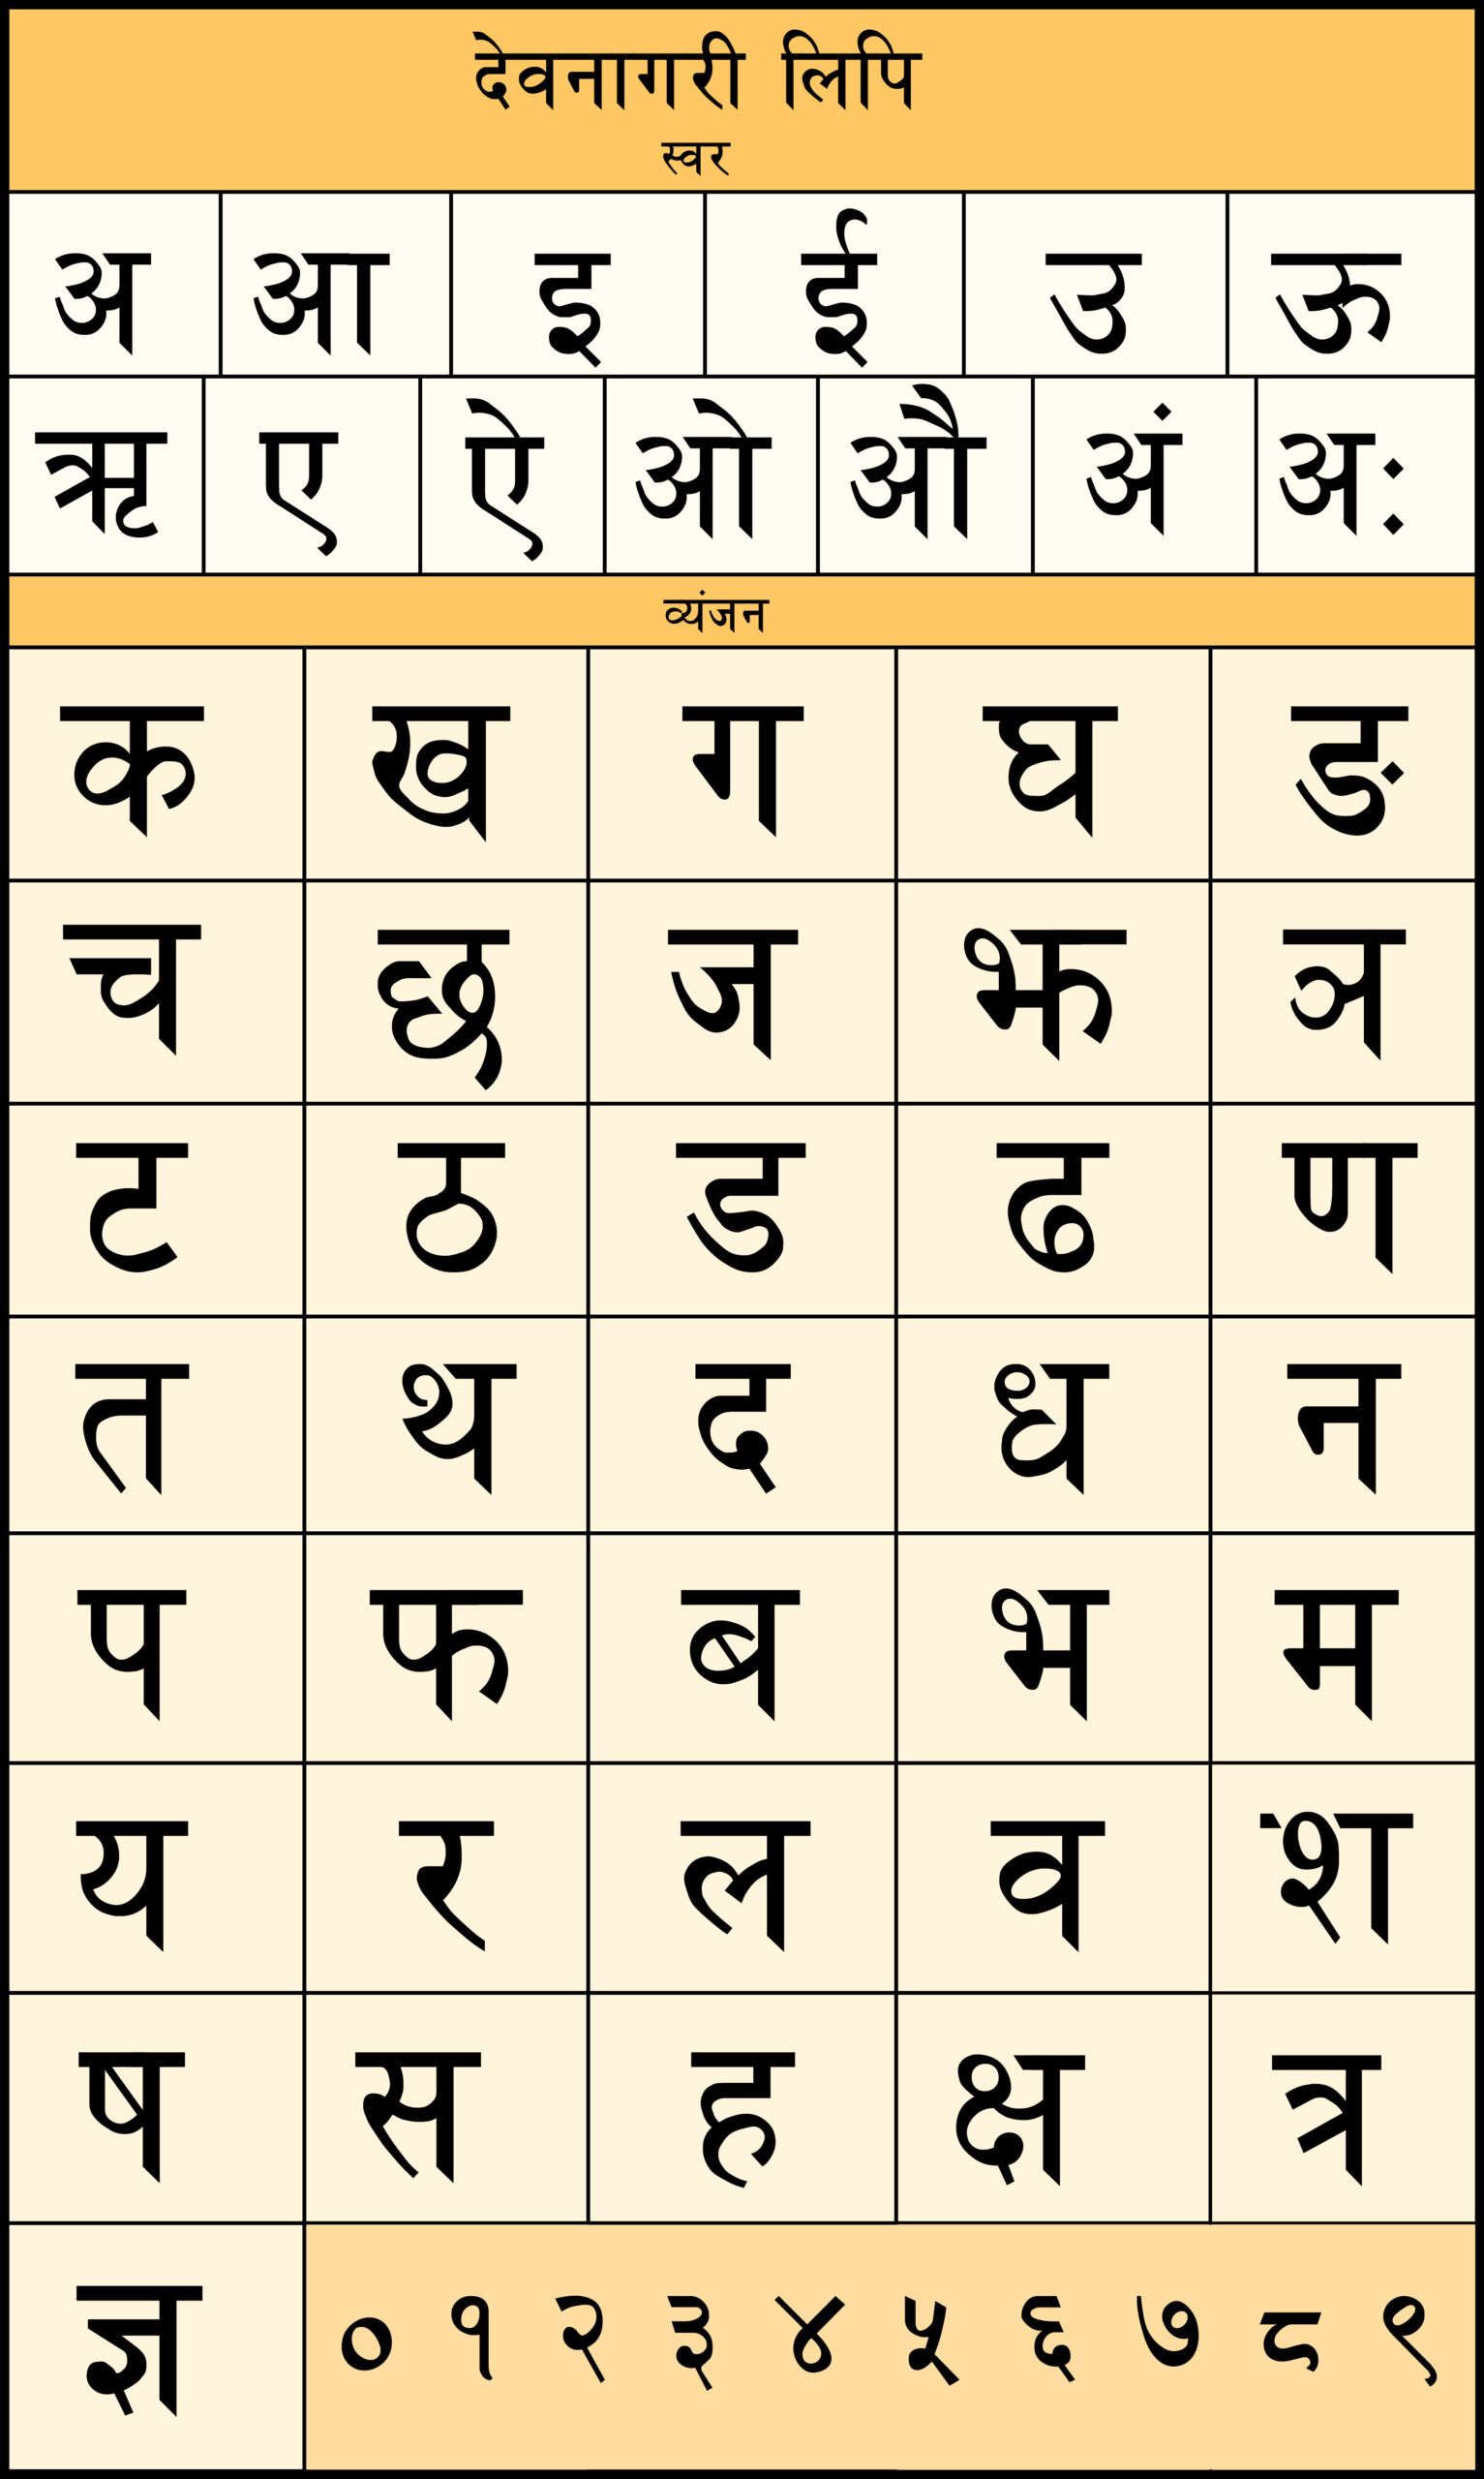 देवनागरी लिपि
स्वर
अ आ इ ई उ ऊ
ऋ ए ऐ ओ औ अं अः
व्यंजन
क ख ग घ ङ
च छ ज झ ञ
ट ठ ड ढ ण
त थ द ध न
प फ ब भ म
य र ल व श
ष स ह क्ष त्र
ज्ञ ० १ २ ३ ४ ५ ६ ७ ८ ९